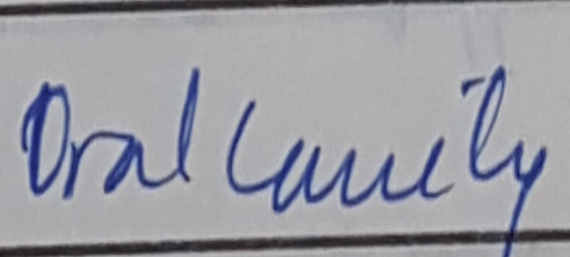 Oral Cavity